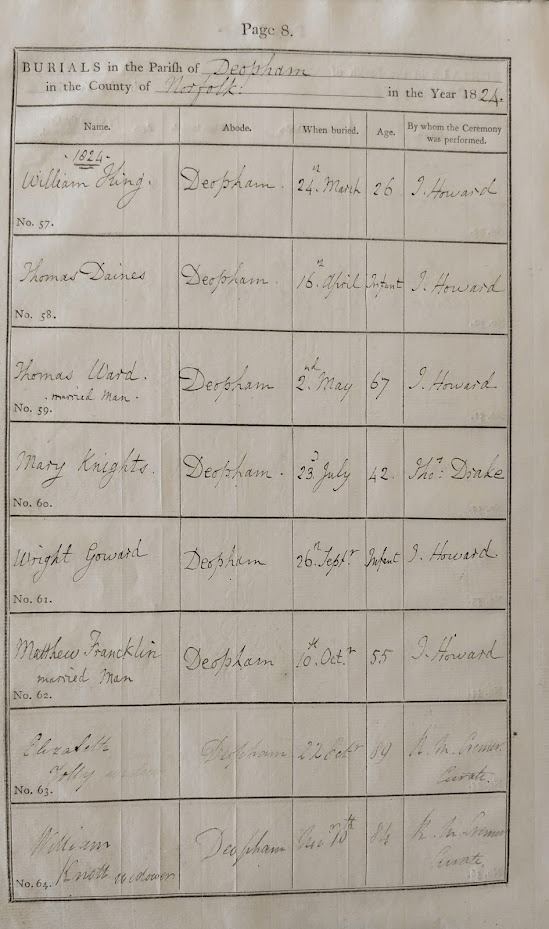 Page 8.
BURIALS in the Parish of Deopham
in the County of Norfolk: in the Year 1824.
Name. Abode. When buried. Age. By whom the Ceremony was performed.
1824.
William King. Deopham. 24th March 26 I. Howard
No. 57.
Thomas Daines Deopham. 16th April Infant I. Howard
No. 58.
Thomas Ward. Deopham 2nd May 67 I. Howard
married Man.
No. 59.
Mary Knights. Deopham. 23d July 42. Thos: Drake
No. 60.
Wright Goward Deopham 26th Septr Infant I. Howard
No. 61.
Matthew Francklin Deopham 10th Octr 55 I. Howard
married Man
No. 62.
Elizabeth Deopham 22 Octr 89 R. M. Cremer
Tolly Curate.
No. 63.
William Deopham 10th 84 R. M. Cremer
No. 64. Knott widower Curate.